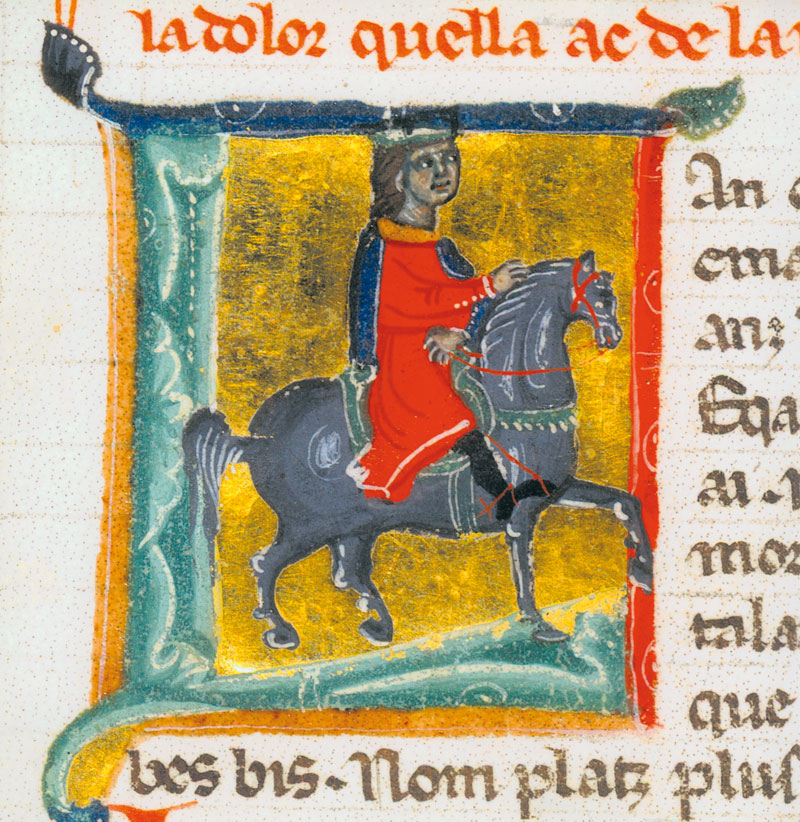 la dolor quella ac de la
An
ema
anz
Eqa
ai .
mor
tala
que
bes bis. Nom platz plus